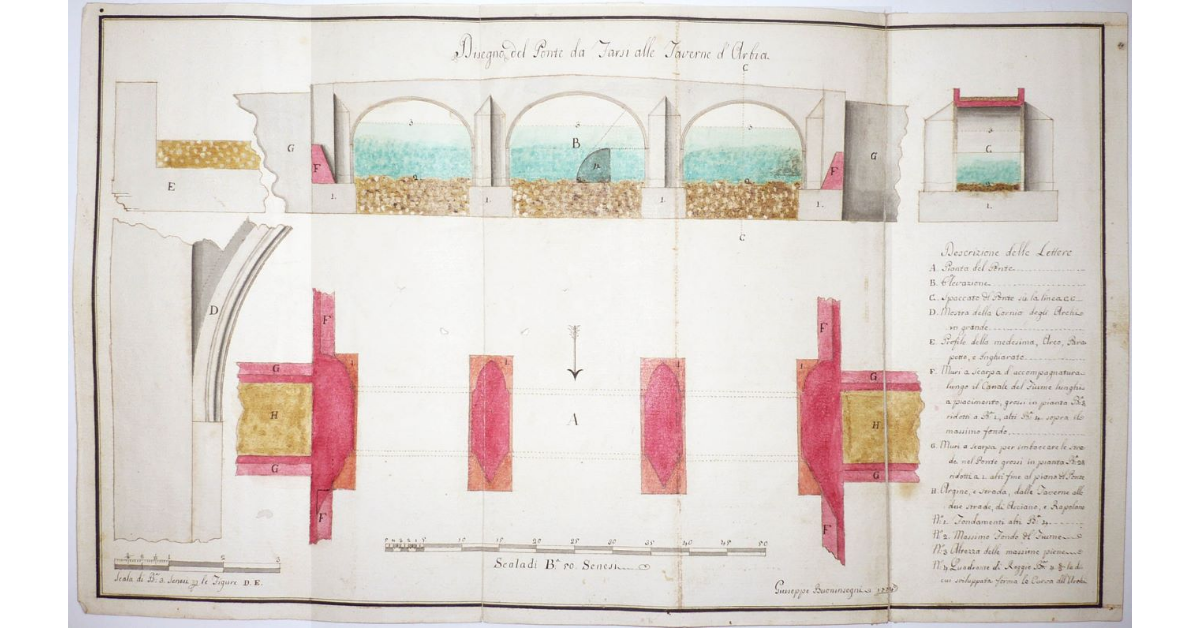 Disegno del Ponte da Farsi alle Taverne d'Arbia.
C
G
F
3
B
3
3
F
G
E
2
2
1.
1.
1.
1.
C
3
C
2
1.
D
F
F
G
H
G
F
1
1
1
1
A
G
H
G
F
Descrizione delle Lettere
A. Pianta del Ponte
B. Elevazione
C. Spaccato del Ponte su la linea CC
D. Mostra della Cornice degli Archi
in grande
E. Profile della medesima, Arco, Para
petto, e
F. Muri a scarpa d'accompagnatura
lungo il Canale del Fiume lunghi
a piacimento, grossi in pianta
ridotti a alti sopra il
massimo fondo
G. Muri a scarpa per imboccare le stra
de nel Ponte grossi in pianta
ridotti a alti fino al piano del Ponte
H. Argine, e strada, dalle Taverne alle
due strade, di Asciano, e Rapolano
N. 1. Fondamenti alti B. 4.
N. 2. Massimo Fondo del Fiume
N. 3 Altezza delle massime piene
Quadrante di Raggio
cui sviluppata forma la
5 10 15 20 25 30 35 40 45 50
Scala di B. 50. Senesi
Scala di B. 2. Senesi le Figure D. E.
Giuseppe Buoninsegni